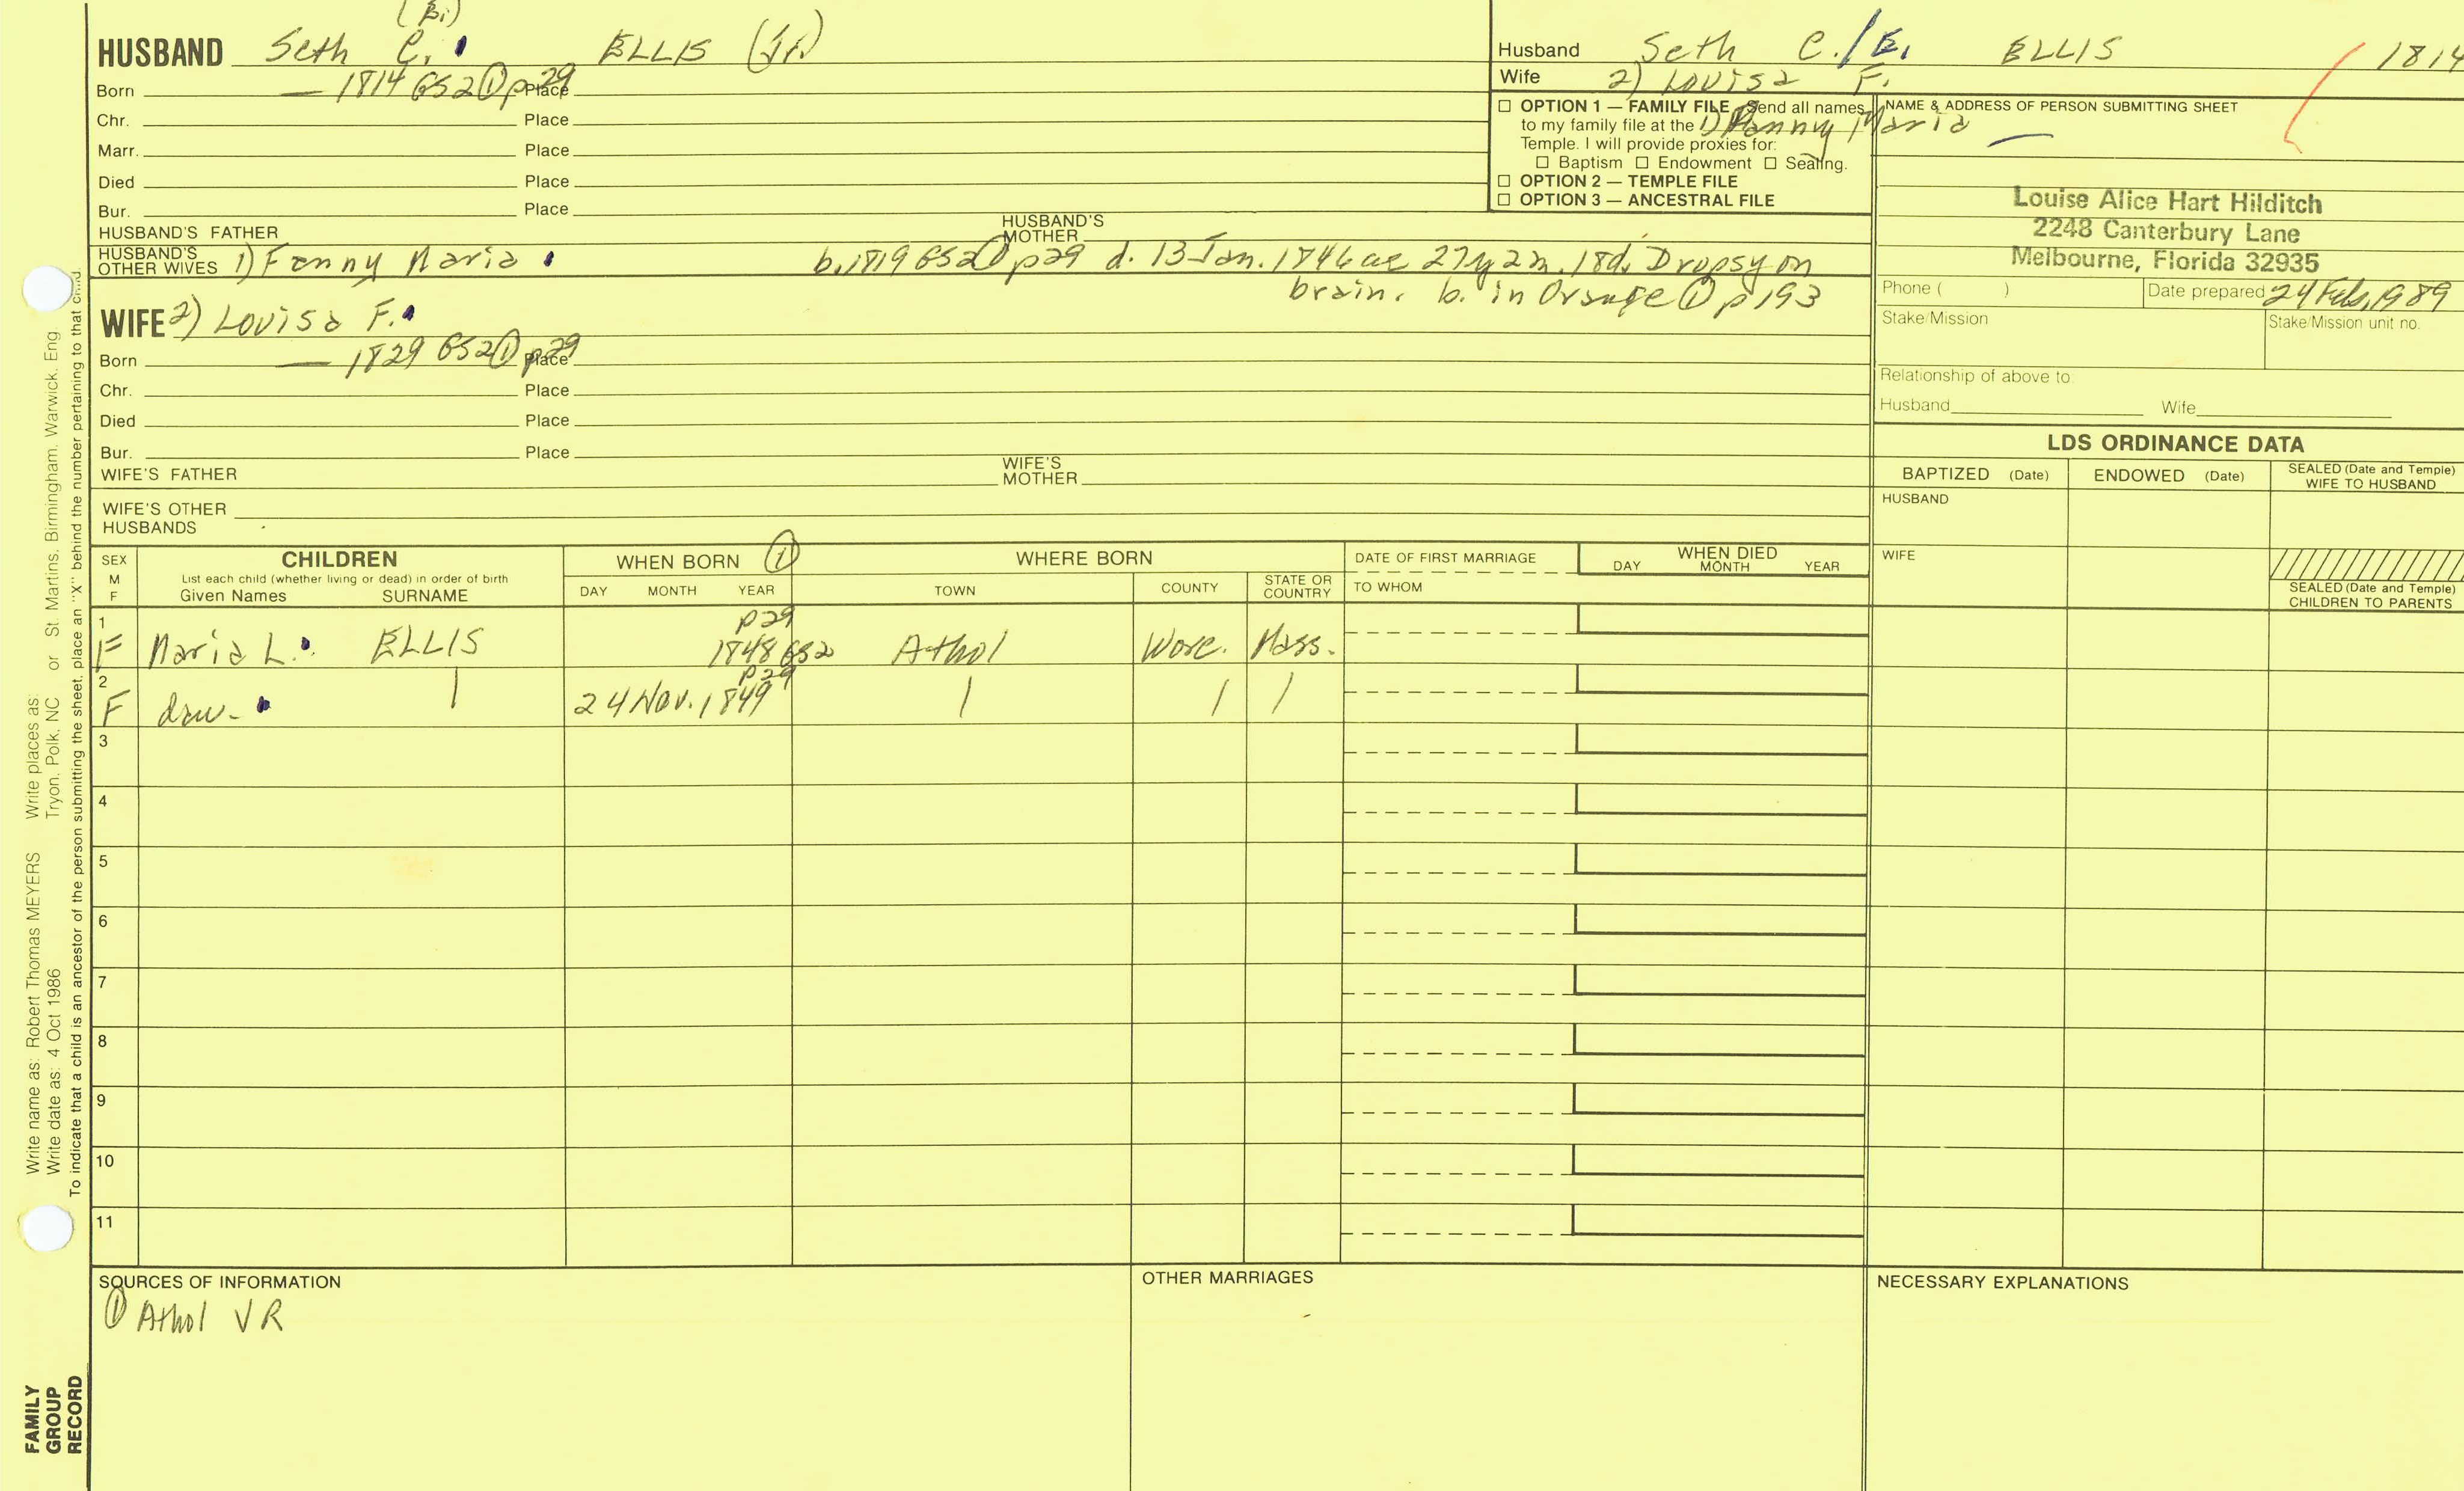 (Bi)
HUSBAND Seth C. ELLIS (Jr.)
Born — 1814 GS2 ① p29 Place
Chr. Place
Marr. Place
Died Place
Bur. Place
HUSBAND'S FATHER HUSBAND'S MOTHER
HUSBAND'S OTHER WIVES 1) Fanny Maria b. 1819 GS2 ① p29 d. 13 Jan. 1846 ae 27y 2m. 18d. Dropsy on
brain. b. in Orange ① p193
WIFE 2) Louisa F.
Born — 1829 GS2 ① p29 Place
Chr. Place
Died Place
Bur. Place
WIFE'S FATHER WIFE'S MOTHER
WIFE'S OTHER HUSBANDS
Husband Seth C./B. ELLIS 1814
Wife 2) Louisa F.
1) Fanny Maria —
☐ OPTION 1 — FAMILY FILE Send all names
to my family file at the
Temple. I will provide proxies for:
☐ Baptism ☐ Endowment ☐ Sealing.
☐ OPTION 2 — TEMPLE FILE
☐ OPTION 3 — ANCESTRAL FILE
NAME & ADDRESS OF PERSON SUBMITTING SHEET
Louise Alice Hart Hilditch
2248 Canterbury Lane
Melbourne, Florida 32935
Phone ( ) Date prepared 24 Feb. 1989
Stake/Mission Stake/Mission unit no.
Relationship of above to:
Husband Wife
LDS ORDINANCE DATA
BAPTIZED (Date) ENDOWED (Date) SEALED (Date and Temple) WIFE TO HUSBAND
HUSBAND
WIFE
SEALED (Date and Temple)
CHILDREN TO PARENTS
SEX M F CHILDREN WHEN BORN ① WHERE BORN DATE OF FIRST MARRIAGE WHEN DIED
List each child (whether living or dead) in order of birth
Given Names SURNAME DAY MONTH YEAR TOWN COUNTY STATE OR COUNTRY TO WHOM DAY MONTH YEAR
p29
1 F Maria L. ELLIS 1848 GS2 Athol Worc. Mass.
p29
2 F daw. | 24 Nov. 1849 | | |
3
4
5
6
7
8
9
10
11
SOURCES OF INFORMATION OTHER MARRIAGES NECESSARY EXPLANATIONS
① Athol VR
Write name as: Robert Thomas MEYERS Write places as:
Write date as: 4 Oct 1986 Tryon, Polk, NC or St. Martins, Birmingham, Warwick, Eng
To indicate that a child is an ancestor of the person submitting the sheet, place an "X" behind the number pertaining to that child.
FAMILY
GROUP
RECORD